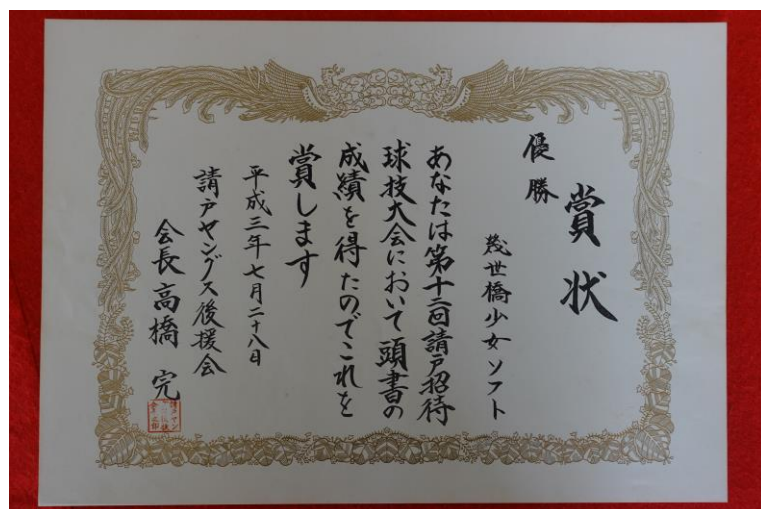 賞状
優勝
幾世橋少女ソフト
あなたは第十二回請戸招待
球技大会において頭書の
成績を得たのでこれを
賞します
平成三年七月二十八日
請戸ヤングス後援会
会長高橋 完